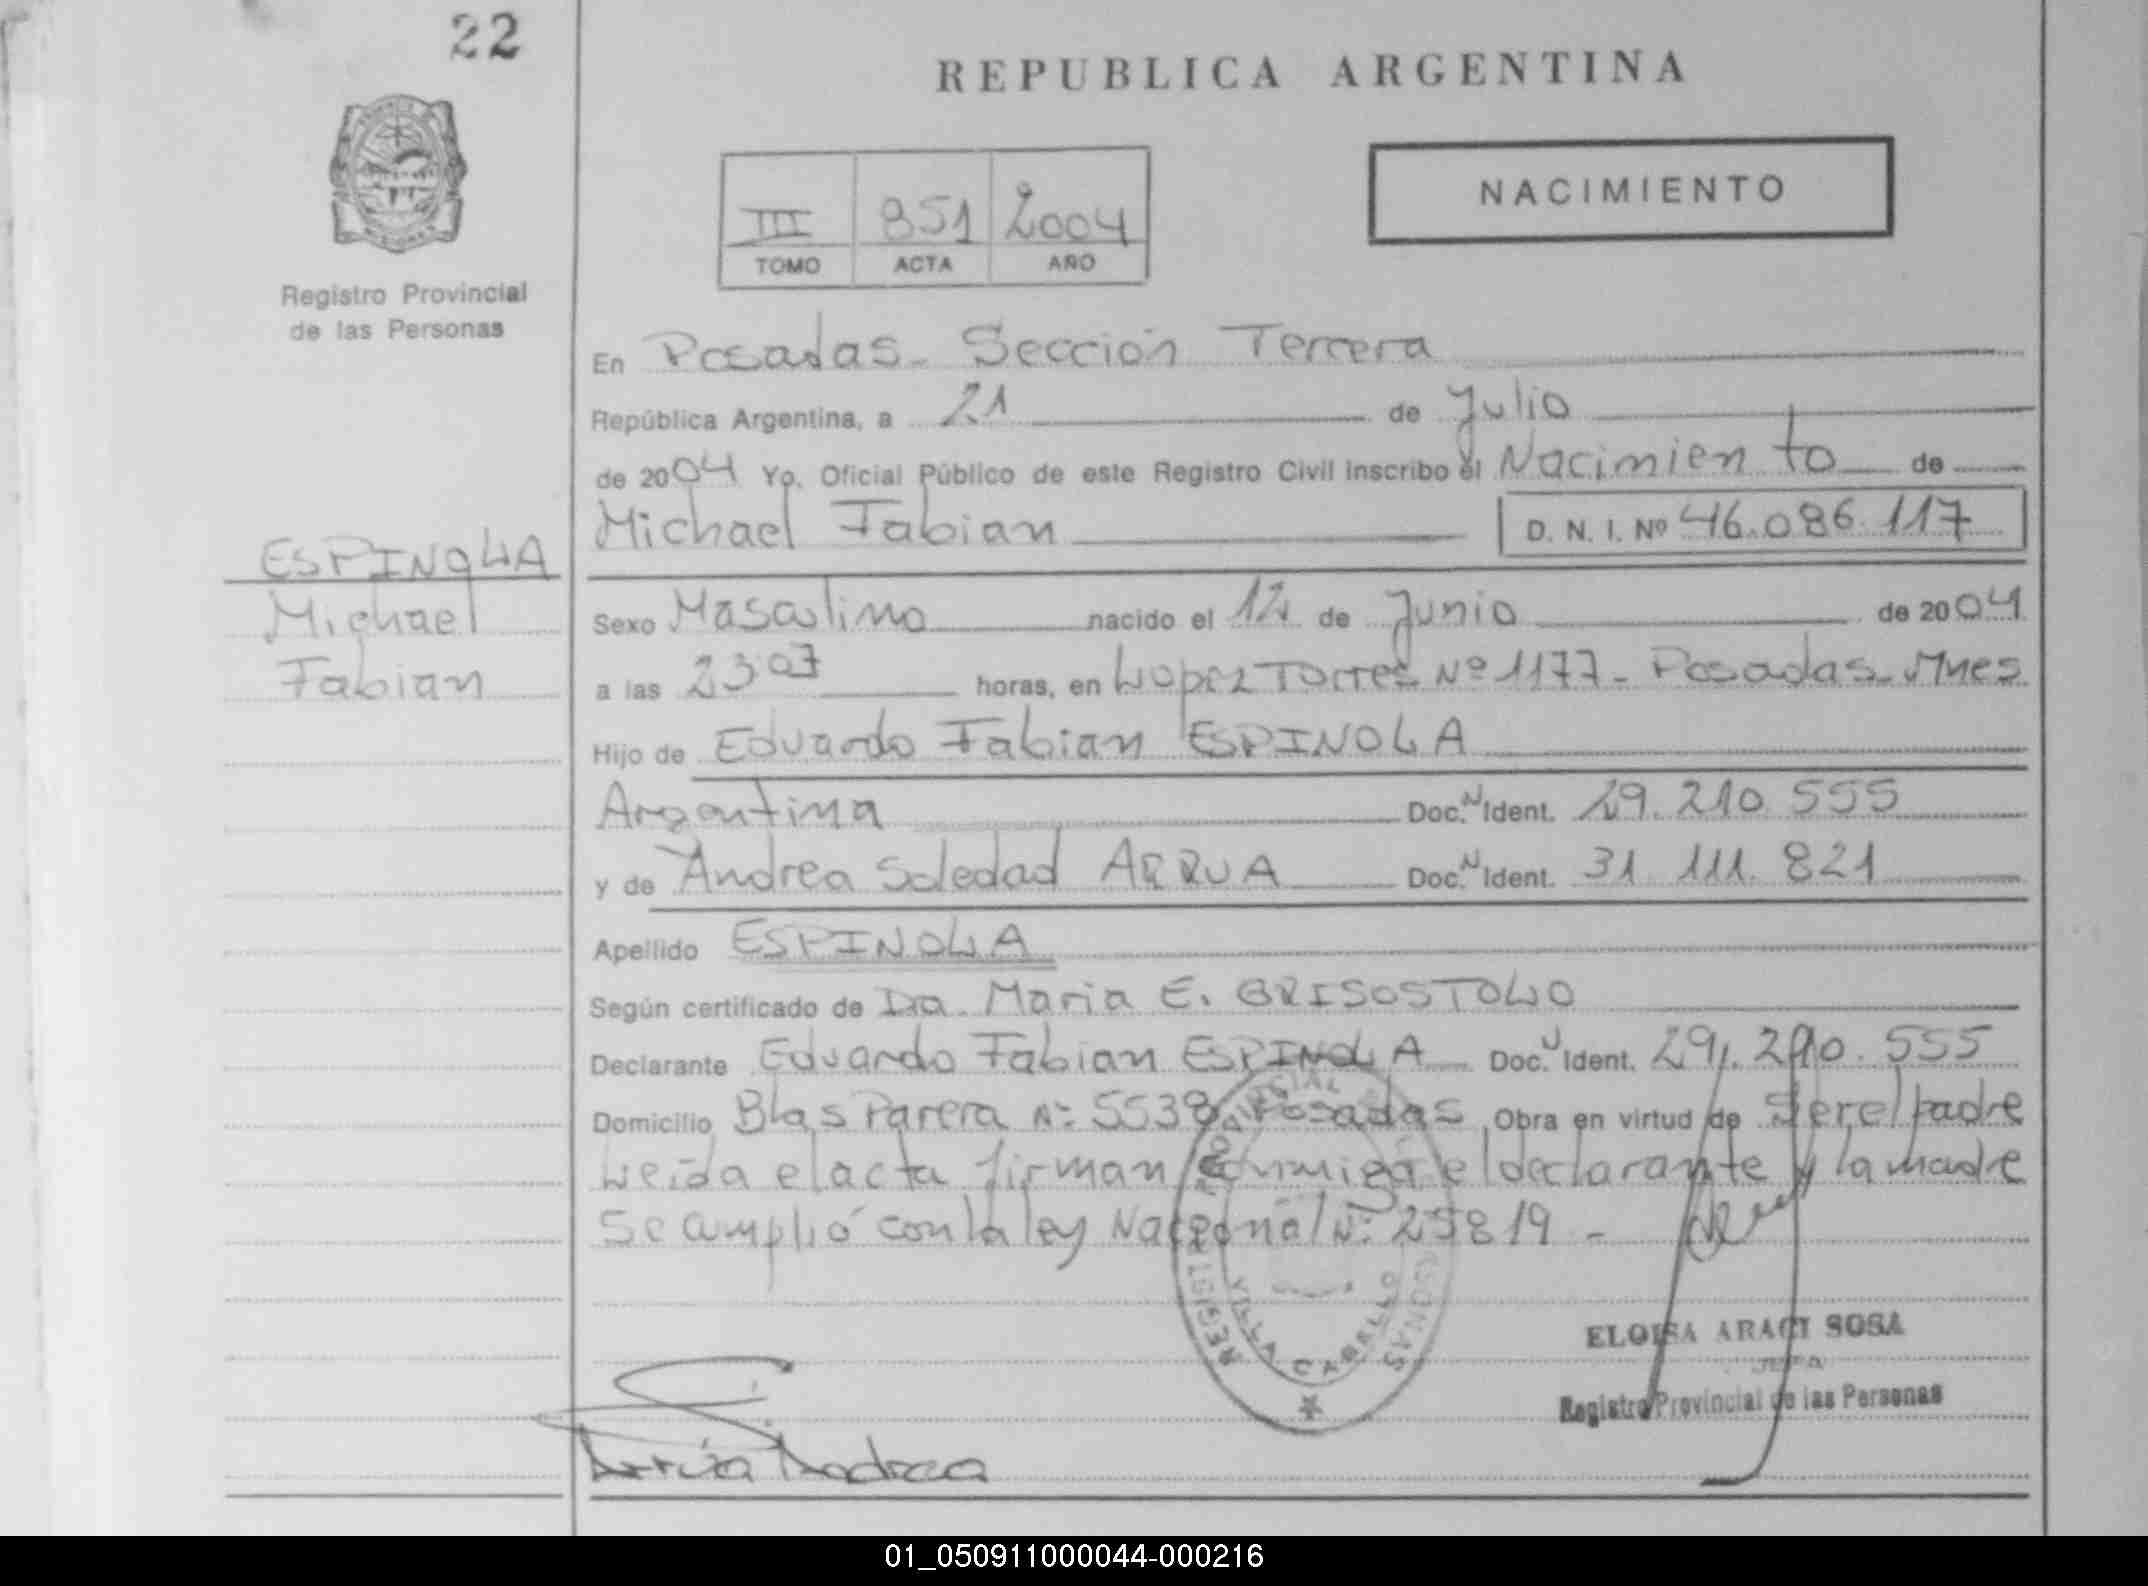 22
Registro Provincial
de las Personas
ESPINOLA
Michael
Fabian
REPUBLICA ARGENTINA
NACIMIENTO
III 851 2004
TOMO ACTA AÑO
En Posadas - Sección Tercera
República Argentina, a 21 de Julio
de 2004 Yo, Oficial Público de este Registro Civil inscribo el Nacimiento de
Michael Fabian D. N. I. Nº 46.086.117
Sexo Masculino nacido el 12 de Junio de 2004
a las 23 07 horas, en Lopez Torres Nº 1177 - Posadas - Mnes
Hijo de Eduardo Fabian ESPINOLA
Argentina Doc. N Ident. 29.210.555
y de Andrea Soledad ARRUA Doc. N Ident. 31.111.821
Apellido ESPINOLA
Según certificado de Dra. Maria E. GRISOSTOLO
Declarante Eduardo Fabian ESPINOLA Doc. N Ident. 29.210.555
Domicilio Blas Parera Nº 5538 Posadas Obra en virtud de Ser el padre
Leida el acta firman conmigo el declarante y la madre
Se cumplió con la ley Nacional Nº 25819 -
REGISTRO PROVINCIAL
VILLA CABALLO
ELOISA ARACI SOSA
JEFA
Registro Provincial de las Personas
Arrúa Andrea
01_050911000044-000216